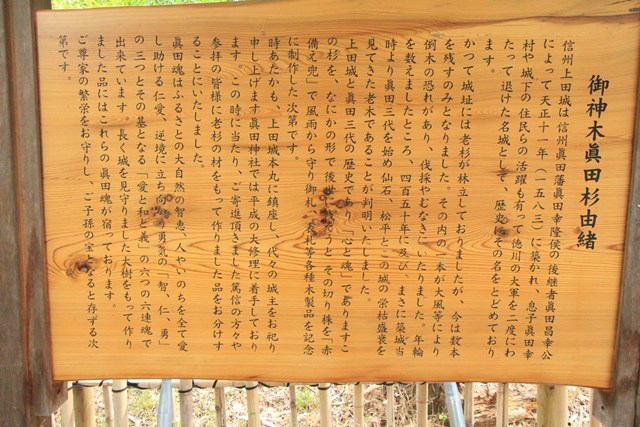 御神木眞田杉由緒
信州上田城は信州眞田藩眞田幸隆侯の後継者眞田昌幸公
によって天正十一年(一五八三)に築かれ、息子眞田幸
村や城下の住民らの活躍も有って徳川の大軍を二度にわ
たって退けた名城として、歴史にその名をとどめており
ます。
かつて城址には老杉が林立しておりましたが、今は数本
を残すのみとなりました。その内の一本が大風等により
倒木の恐れがあり、伐採やむなきにいたりました。年輪
を数えましたところ、四百五十年に及び、まさに築城当
時より眞田三代を始め仙石、松平とこの城の栄枯盛衰を
見てきた老木であることが判明いたしました。
上田城と眞田三代の歴史であり「心と魂」でありますこ
の杉を、なにかの形で後世に残そうと、その切り株を「赤
備え兜」で風雨から守り御札、表札等各種木製品を記念
に制作した次第です。
時あたかも、上田城本丸に鎮座し、代々の城主をお祀り
申し上げます眞田神社では平成の大修理に着手しており
ます。この時に当たり、ご寄進頂きました篤信の方々や
参拝の皆様に老杉の材をもって作りました品をお分けす
ることにいたしました。
眞田魂はふるさとの大自然の智恵、人やいのちを全て愛
し助ける仁愛、逆境に立ち向かう勇気の「智、仁、勇」
の三つとその基となる「愛と和と義」の六つの六連魂で
出来ています。長く城を見守りました大樹をもって作り
ました品にはこれらの眞田魂が宿っております。
ご尊家の繁栄をお守りし、ご子孫の宝となると存ずる次
第です。